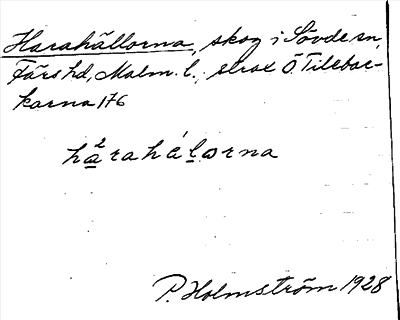 Harahällorna, skog i Sövde sn,
Färs hd, Malm. l., strax Ö. Tilebac-
karna 176
hàrahálorna
P. Holmström 1928